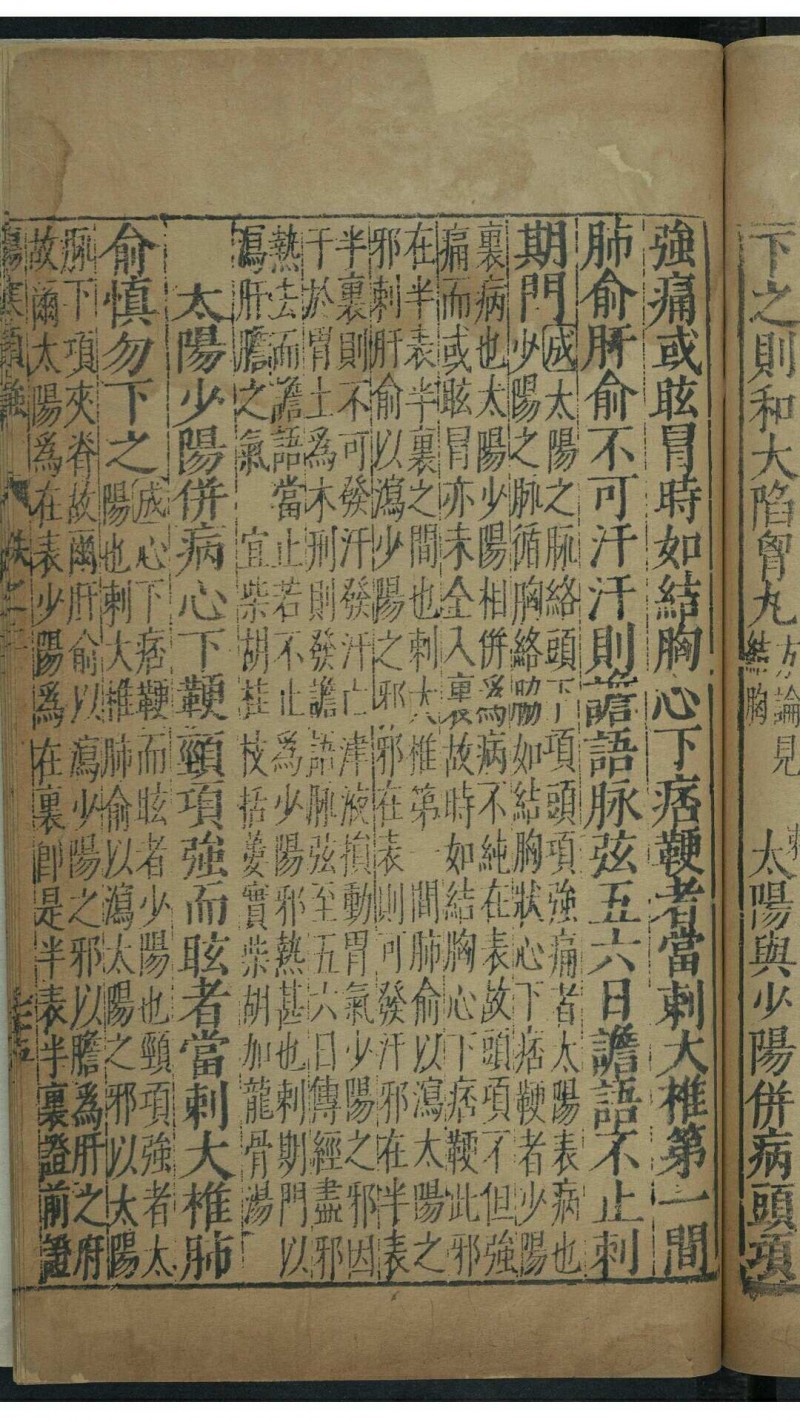 下之則和大陷胷丸
方論見
結胸
太陽與少陽併病頭項
強痛或眩冒時如結胸心下痞鞕者當刺大椎第一間
肺俞肝俞不可汗汗則譫語脉弦五六日譫語不止刺
期門
成太陽之脉絡頭下項頭項強痛者太陽表病也
少陽之脉循胸絡脇如結胸狀心下痞鞕者少陽
裏病也太陽少陽相併爲病不純在表故頭項不但強
痛而或眩冒亦未全入裏故時如結胸心下痞鞕此邪
在半表半裏之間也刺大椎第 間肺俞以瀉太陽之
邪刺肝俞以瀉少陽之邪邪在表則可發汗邪在半表
半裏則不可發汗發汗亡津液損動胃氣少陽之邪因
干於胃土爲木刑則發譫語脉弦至五六日傳經盡邪
熱去而譫語當止若不止爲少陽邪熱甚也刺期門以
瀉肝膽之氣 宜柴胡桂枝括蔞實柴胡加龍骨湯
太陽少陽併病心下鞕頸項強而眩者當刺大椎肺
俞慎勿下之
成心下痞鞕而眩者少陽也頸項強者太
陽也刺大椎肺俞以瀉太陽之邪以太陽
脉下項夾脊故爾肝俞以瀉少陽之邪以膽爲肝之府
故爾太陽爲在表少陽爲在裏卽是半表半裏證前證